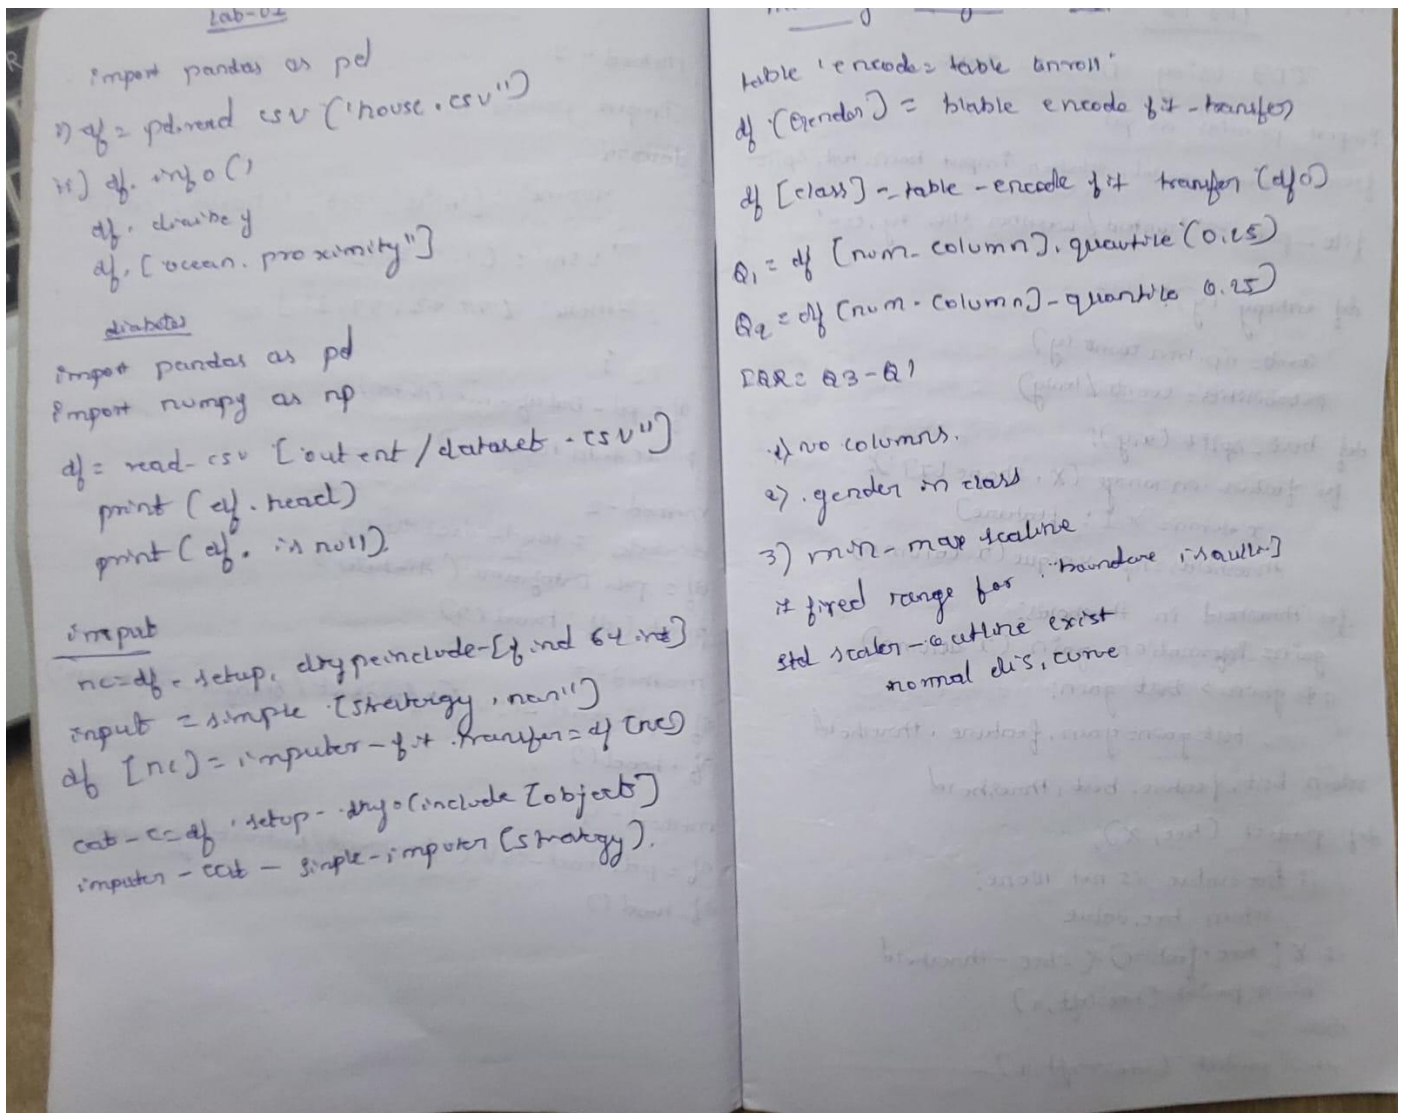 Lab-01
import pandas as pd
i) df = pd.read csv ('house.csv")
ii) df. info ()
df.
df. [ocean. proximity"]
diabetes
import pandas as pd
import numpy as np
df = read-csv [out ent/dataset.csv")
print (df. head)
print (df. is null).
imput
nc=df. setup,
input = simple [strategy, nan")
df [nc] = imputer-fit.transfer = df [nc]
cat-c= df.setup- (include [object]
imputer-cat - simple-imputer (strategy).
table encode = table
df [Gender] = encode fit-transfer
df [class] = table-encode fit transfer (df c)
Q1 = df [num-column]. quantile (0.25)
Q2 = df [num-column]-quantile 0.25)
IQR = Q3-Q1
1) no columns.
2). gender in class
3) min-max scaline
if fixed range for
std scaler - outline exist
normal dis, curve